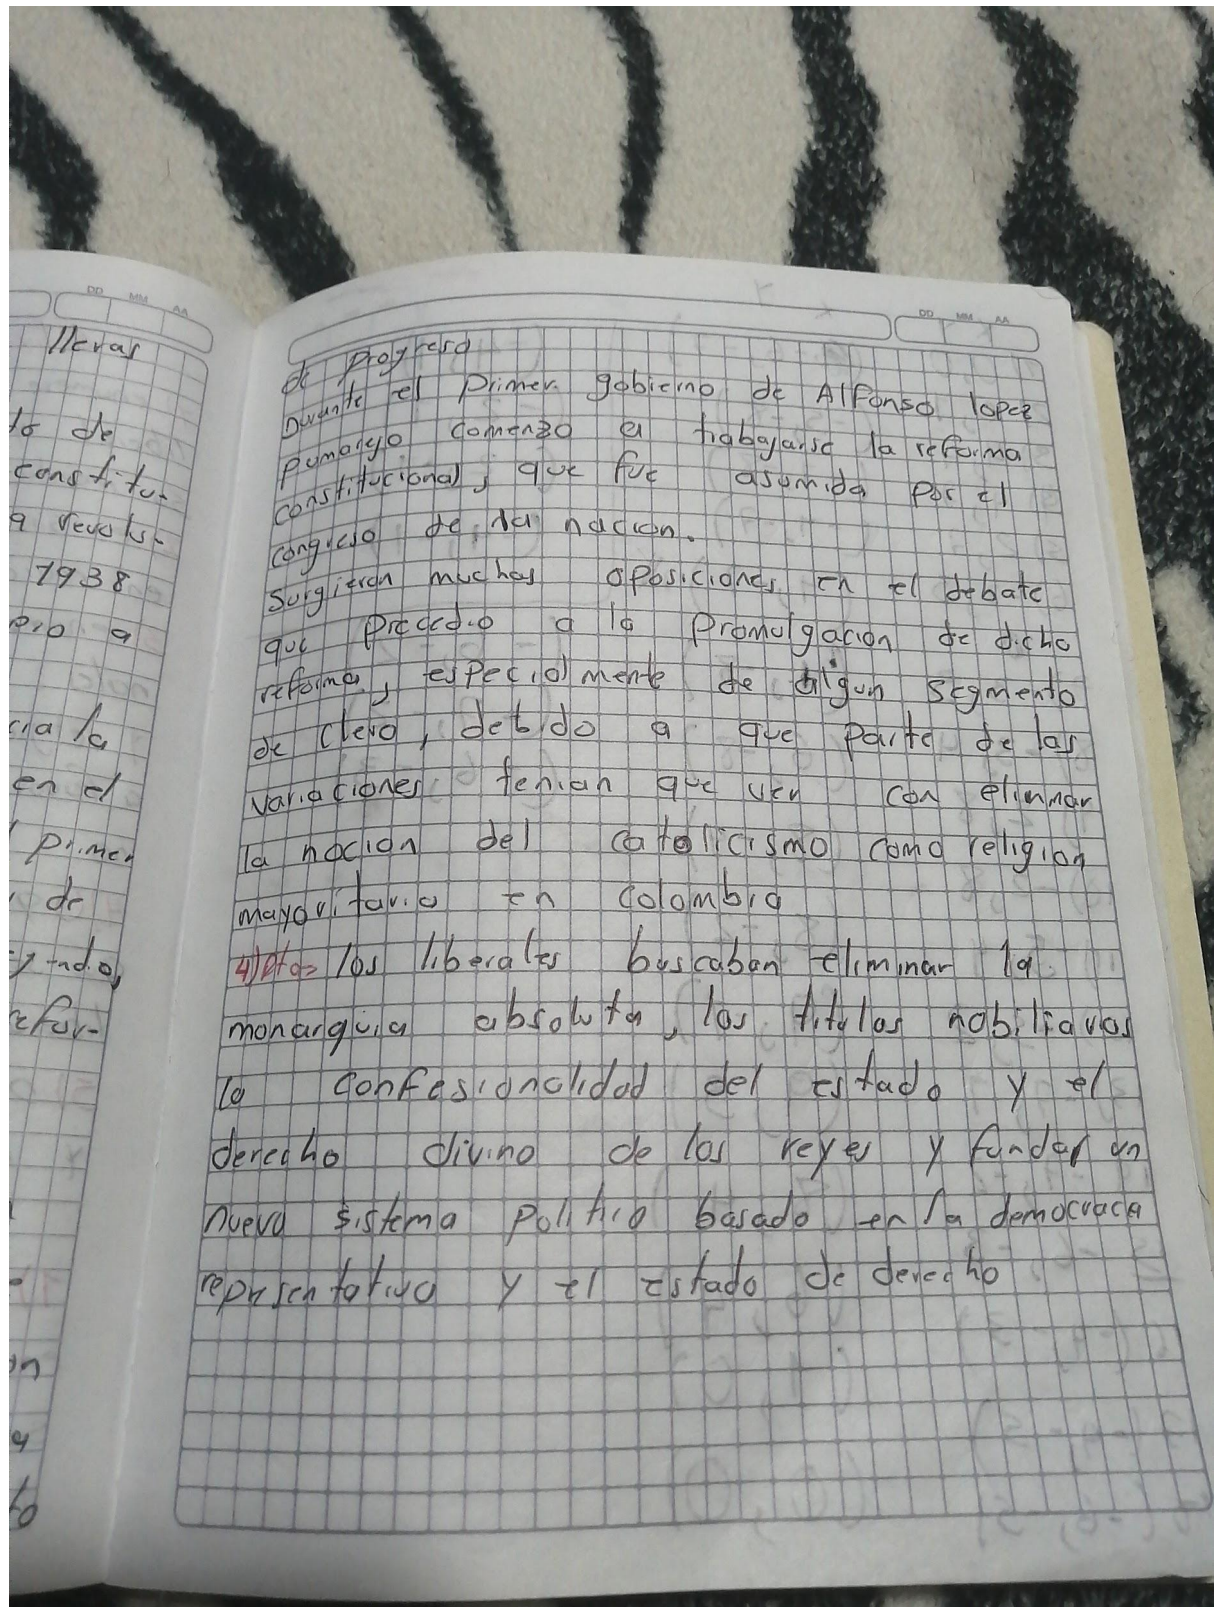 lleras
de
constitu-
a revolu-
1938
a
cia la
en el
primer
de
refor-
DD MM AA
DD MM AA
de progreso
Durante el primer gobierno de Alfonso lopez
pumarejo comenzo a trabajarse la reforma
constitucional, que fue asumida por el
congreso de la nacion.
Surgieron muchas oposiciones en el debate
que precedio a la promulgacion de dicha
reforma, especialmente de algun segmento
de clero, debido a que parte de las
variaciones tenian que ver con eliminar
la nocion del catolicismo como religion
mayoritaria en colombia
4) pta= los liberales buscaban eliminar la
monarquia absoluta, los titulos nobiliavos
la confesionalidad del estado y el
derecho divino de los reyes y fundar un
nuevo sistema politico basado en la democracia
representativa y el estado de derecho